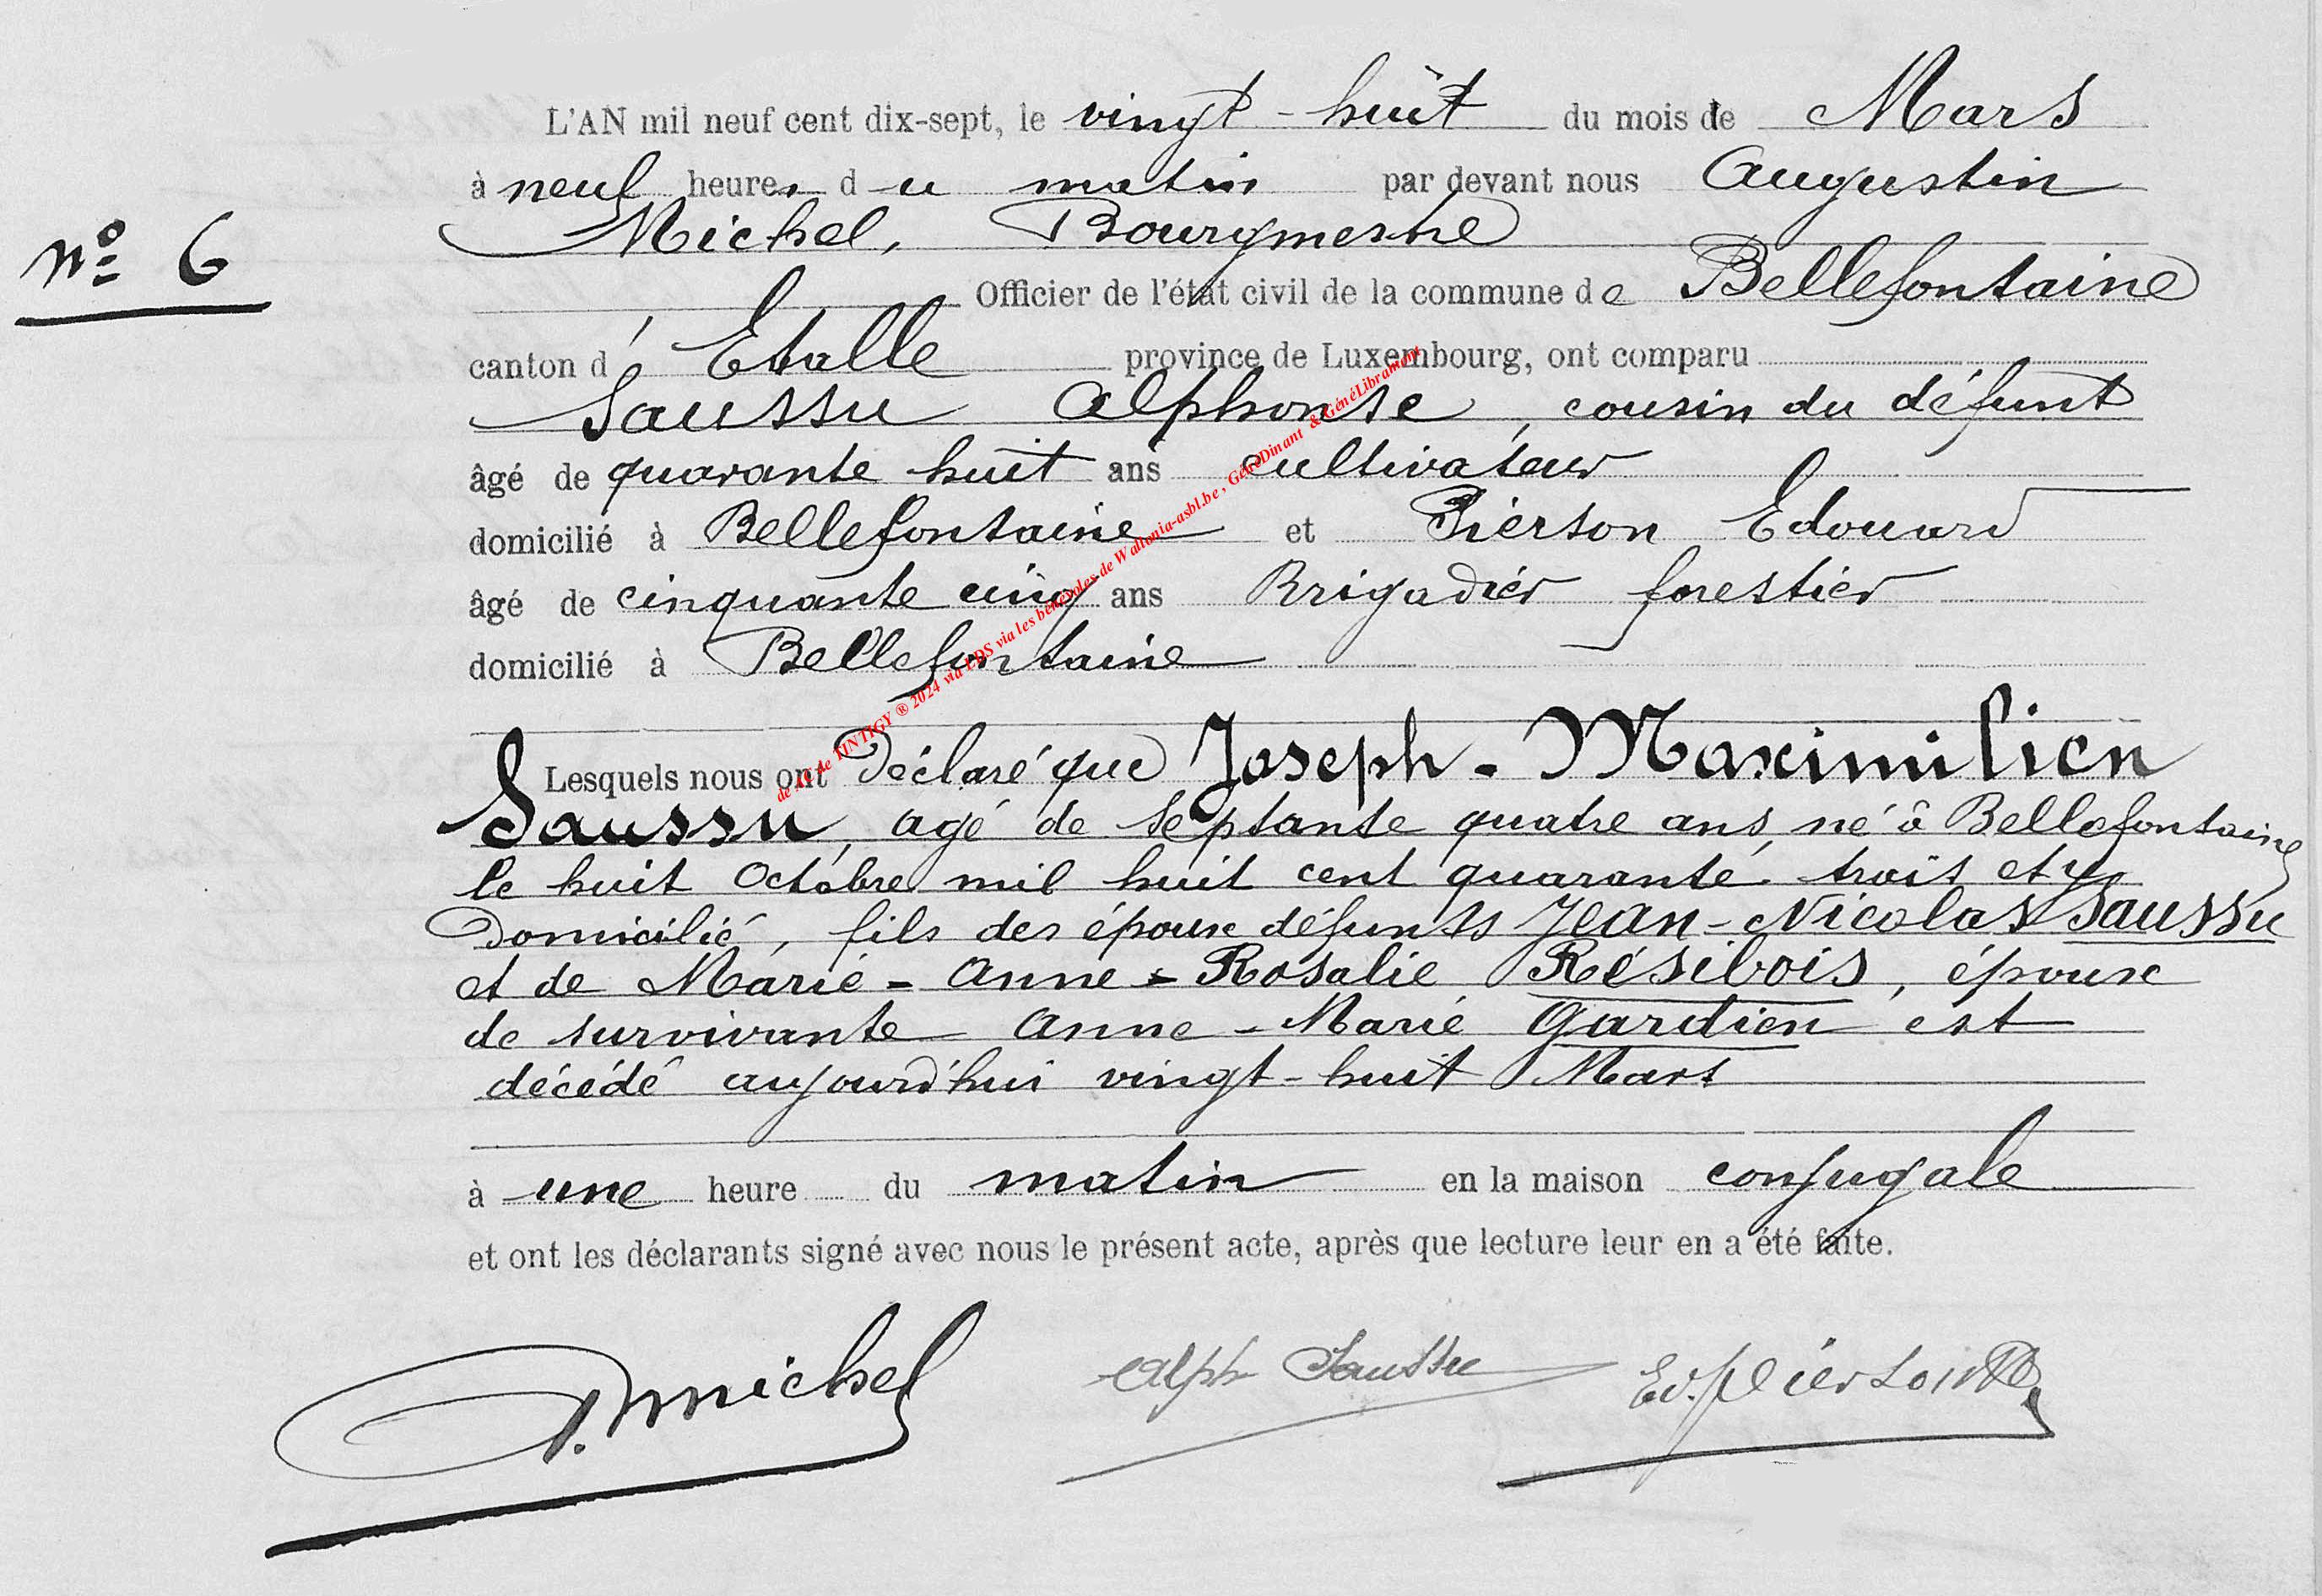 L'AN mil neuf cent dix-sept, le vingt-huit du mois de Mars
à neuf heures du matin par devant nous Augustin
Michel, Bourgmestre
N° 6
Officier de l'état civil de la commune de Bellefontaine
canton d'Etalle province de Luxembourg, ont comparu
Saussu Alphonse, cousin du défunt
âgé de quarante huit ans cultivateur
domicilié à Bellefontaine et Pierson Edouard
âgé de cinquante cinq ans Brigadier forestier
domicilié à Bellefontaine
Lesquels nous ont Déclaré que Joseph-Maximilien
Saussu, agé de septante quatre ans, né à Bellefontaine
le huit Octobre mil huit cent quarante trois et y
Domicilié, fils des époux défunts Jean-Nicolas Saussu
et de Marie-Anne-Rosalie Résibois, époux
de survivante Anne-Marie Gardien est
décédé aujourd'hui vingt-huit Mars
à une heure du matin en la maison conjugale
et ont les déclarants signé avec nous le présent acte, après que lecture leur en a été faite.
A. Michel Alph Saussu Ed. Pierson
de TINTIGY ® 2024 via UDS via les bénévoles de Wallonia-asbl.be, GénéDinant & GénéLibramont